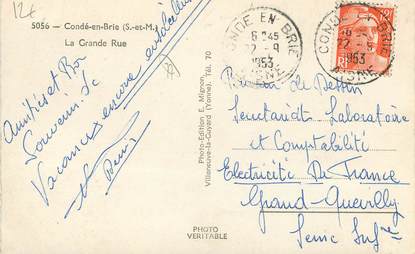 12€
5056 - Condé-en-Brie (S.-et-M.)
La Grande Rue
Amitiés et Bon
Souvenir de
Vacances encore ensoleillées
Photo-Edition E. Mignon
Villeneuve-la-Guyard (Yonne) Tél. 70
PHOTO
VERITABLE
CONDE EN BRIE
22 - 9
1953
AISNE
CONDE EN BRIE
22 - 9
1953
AISNE
Bureau de Dessin
Secrétariat Laboratoire
et Comptabilité
Electricité De France
Grand-Quevilly
Seine Infre